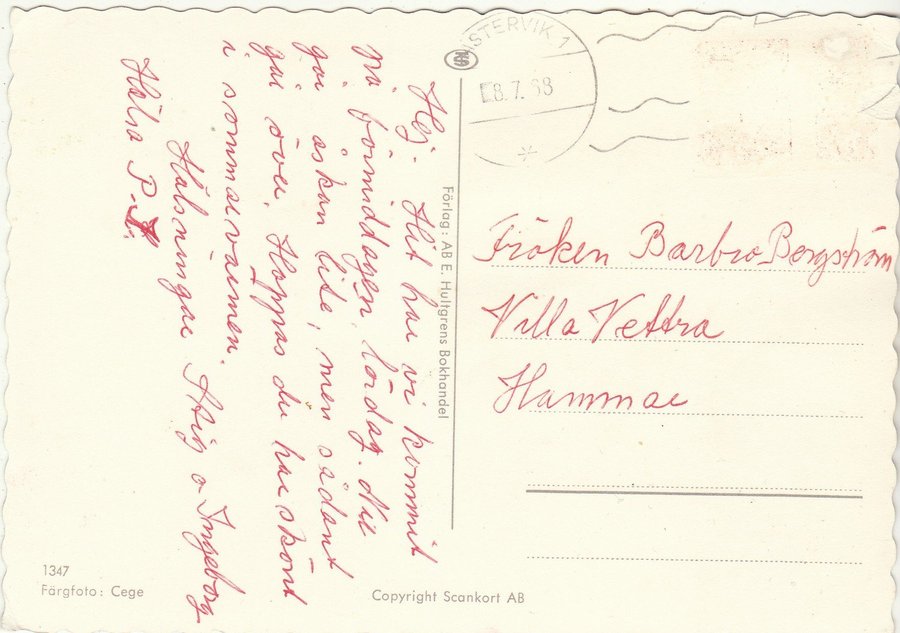 Hej. Hit har vi kommit
på förmiddagen, lördag. Nu
går åskan lite, men sådant
går över. Hoppas du har skönt
i sommarvärmen.
Hälsningar Stig o Ingeborg
Hälsa P.
VÄSTERVIK 1
8.7.68
Förlag: AB E. Hultgrens Bokhandel
Fröken Barbro Bergström
Villa Vettra
Hammar
1347
Färgfoto: Cege
Copyright Scankort AB